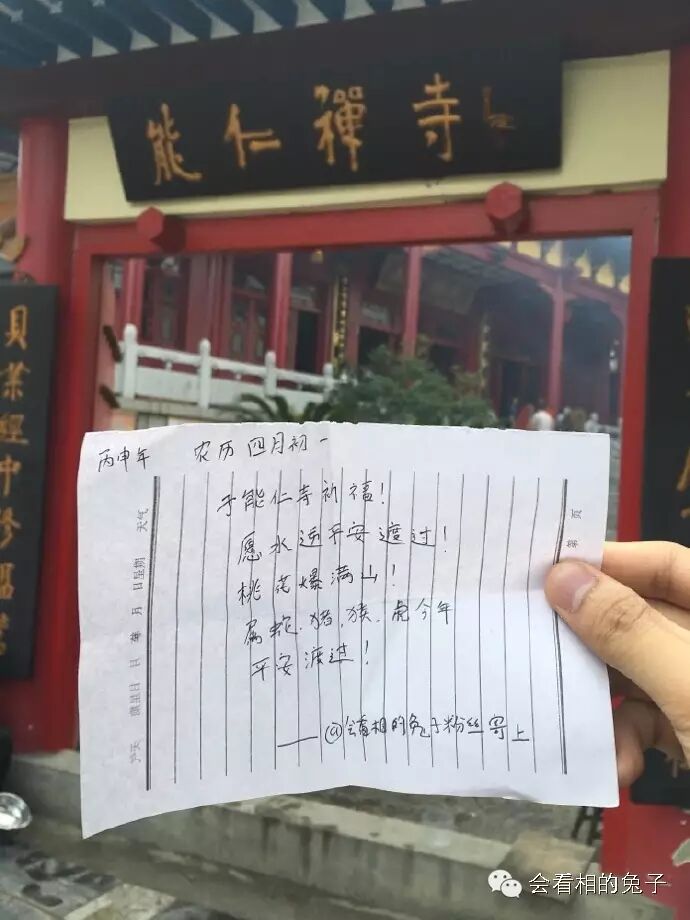 能仁禪寺
貝葉經中修
丙申年 农历四月初一
于能仁寺祈福！
愿水逆平安渡过！
桃花爆满山！
属蛇、猪、猴、虎今年
平安渡过！
——@会看相的兔子粉丝寄上
天气
星期
日
月
年
第 页
会看相的兔子